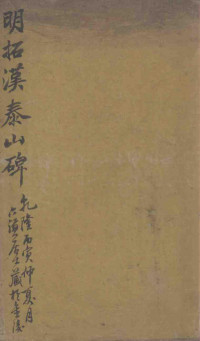 明拓漢泰山碑
乾隆丙寅仲夏月
居士藏於